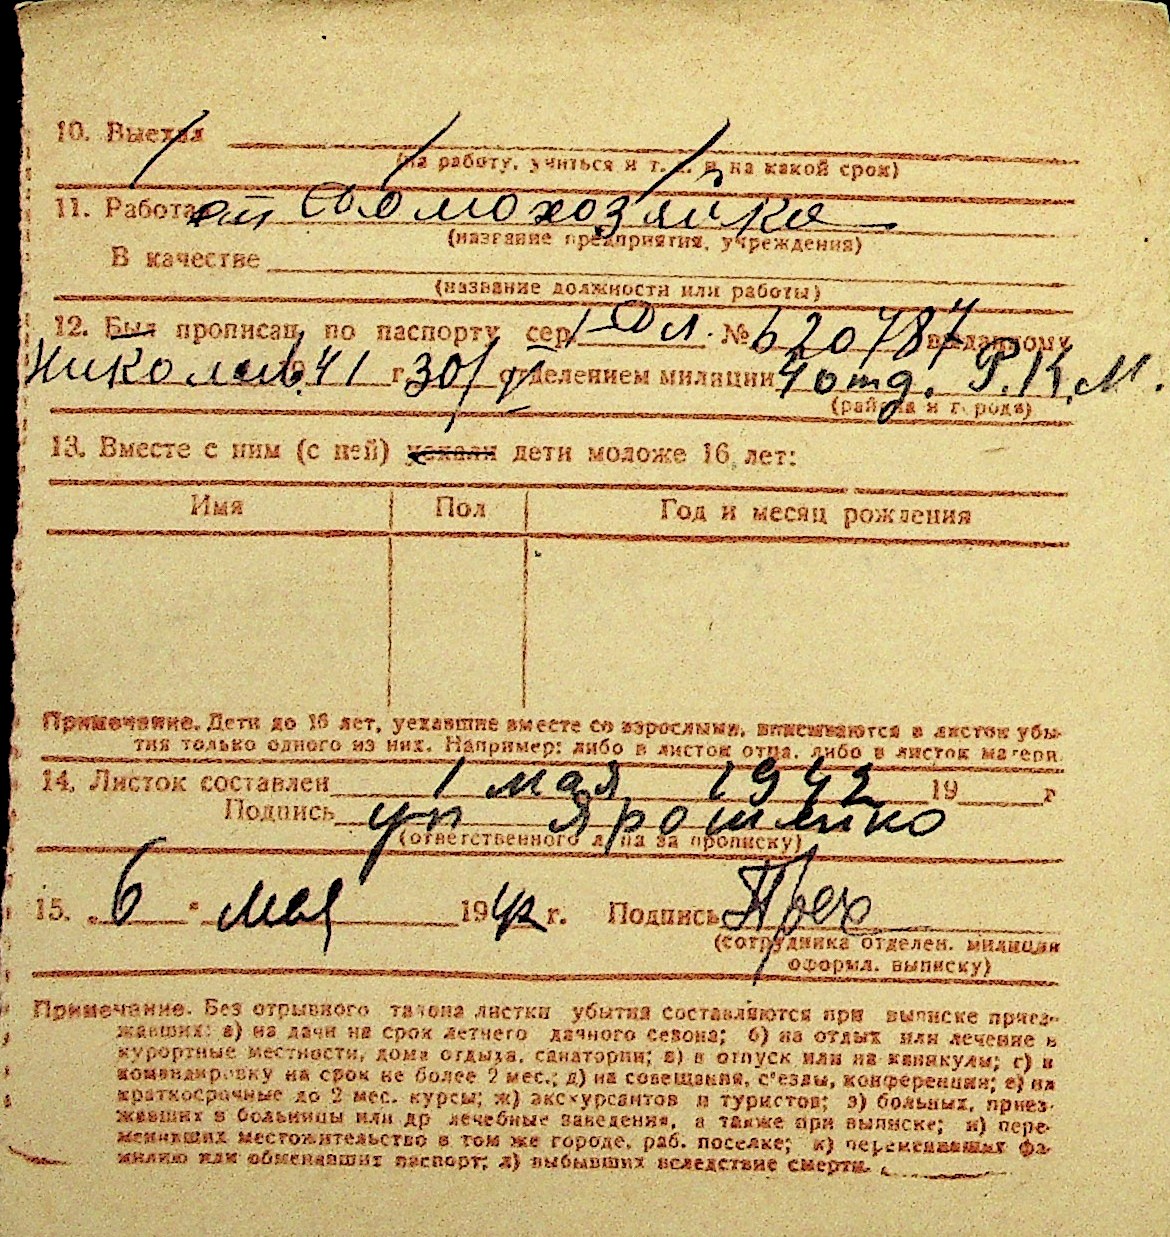 10. Выехал
(на работу, учиться и т. д. и на какой срок)
11. Работает домохозяйка
(название предприятия, учреждения)
В качестве
(название должности или работы)
12. Был прописан по паспорту сер. № 620787 выданному
Николаев. 41 г. 30/V отделением милиции 4 отд. Р.К.М.
(района и города)
13. Вместе с ним (с ней) уехали дети моложе 16 лет:
Имя Пол Год и месяц рождения
Примечание. Дети до 16 лет, уехавшие вместе со взрослыми, вписываются в листок убы-
тия только одного из них. Например: либо в листок отца, либо в листок матери.
14. Листок составлен 1 мая 1942 19 г
Подпись уп Ярошенко
(ответственного лица за прописку)
15. „6" мая 1942 г. Подпись
(сотрудника отделен. милиции
оформл. выписку)
Примечание. Без отрывного талона листки убытия составляются при выписке приез-
жавших: а) на дачи на срок летнего дачного сезона; б) на отдых или лечение в
курортные местности, дома отдыха, санатории; в) в отпуск или на каникулы; г) в
командировку на срок не более 2 мес.; д) на совещания, съезды, конференции; е) на
краткосрочные до 2 мес. курсы; ж) экскурсантов и туристов; з) больных, приез-
жавших в больницы или др лечебные заведения, а также при выписке; и) пере-
менивших местожительство в том же городе, раб. поселке; к) переменивших фа-
милию или обменявших паспорт; л) выбывших вследствие смерти.